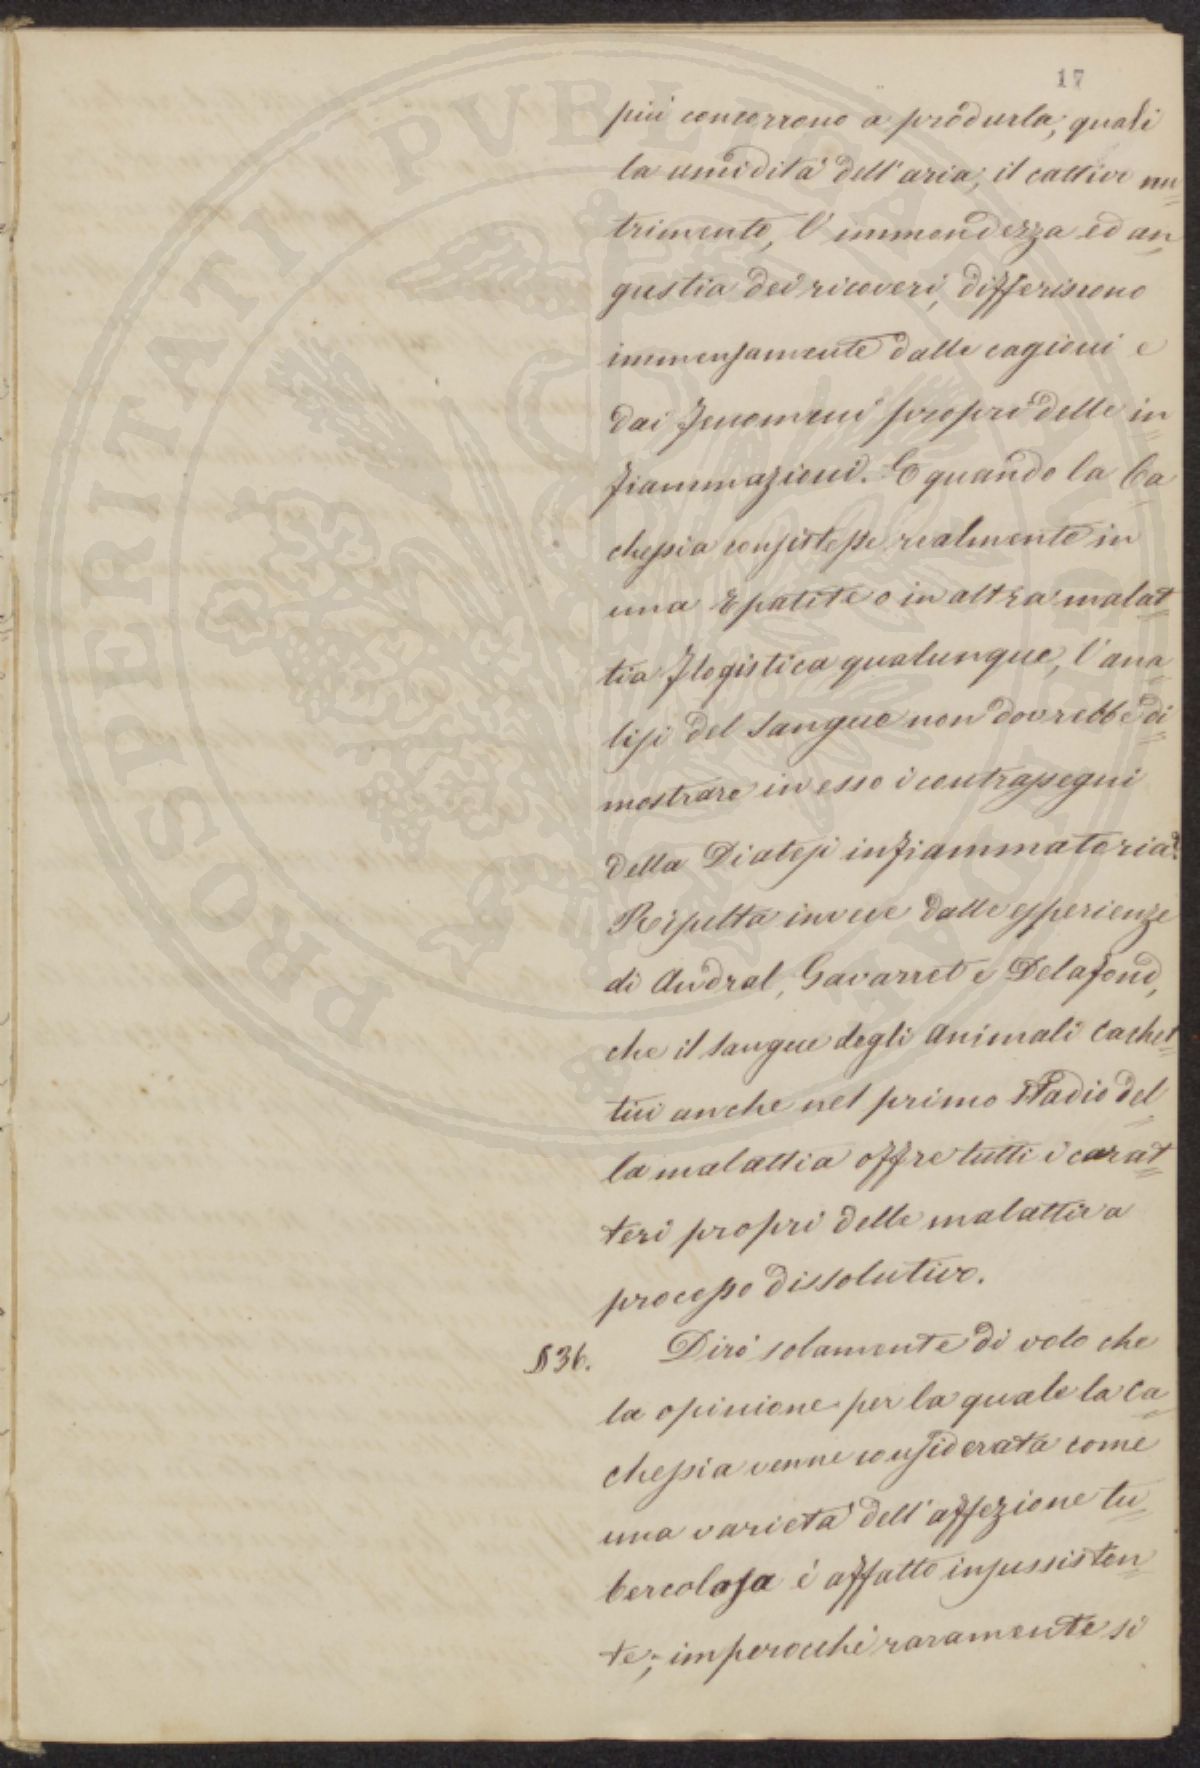 17
più concorrono a produrla; quali
la umidità dell'aria; il cattivo nu=
trimento, l'immondezza ed an=
gustia dei ricoveri, differiscono
immensamente dalle cagioni e
dai fenomeni propri delle in=
fiammazioni. E quando la Ca=
chessia consistesse realmente in
una Epatite o in altra malat=
tia flogistica qualunque, l'ana=
lisi del sangue non dovrebbe di=
mostrare in esso i contrassegni
della Diatesi infiammatoria?
Risulta invece dalle esperienze
di Andral, Gavarret e Delafond,
che il sangue degli animali cachet=
tici anche nel primo stadio del=
la malattia offre tutti i carat=
teri propri delle malattie a
processo dissolutivo.
§ 36. Dirò solamente di volo che
la opinione per la quale la Ca=
chessia venne considerata come
una varietà dell'affezione tu=
bercolosa è affatto insussisten=
te; imperocchè raramente si
PROSPERITATI PVBLICAE